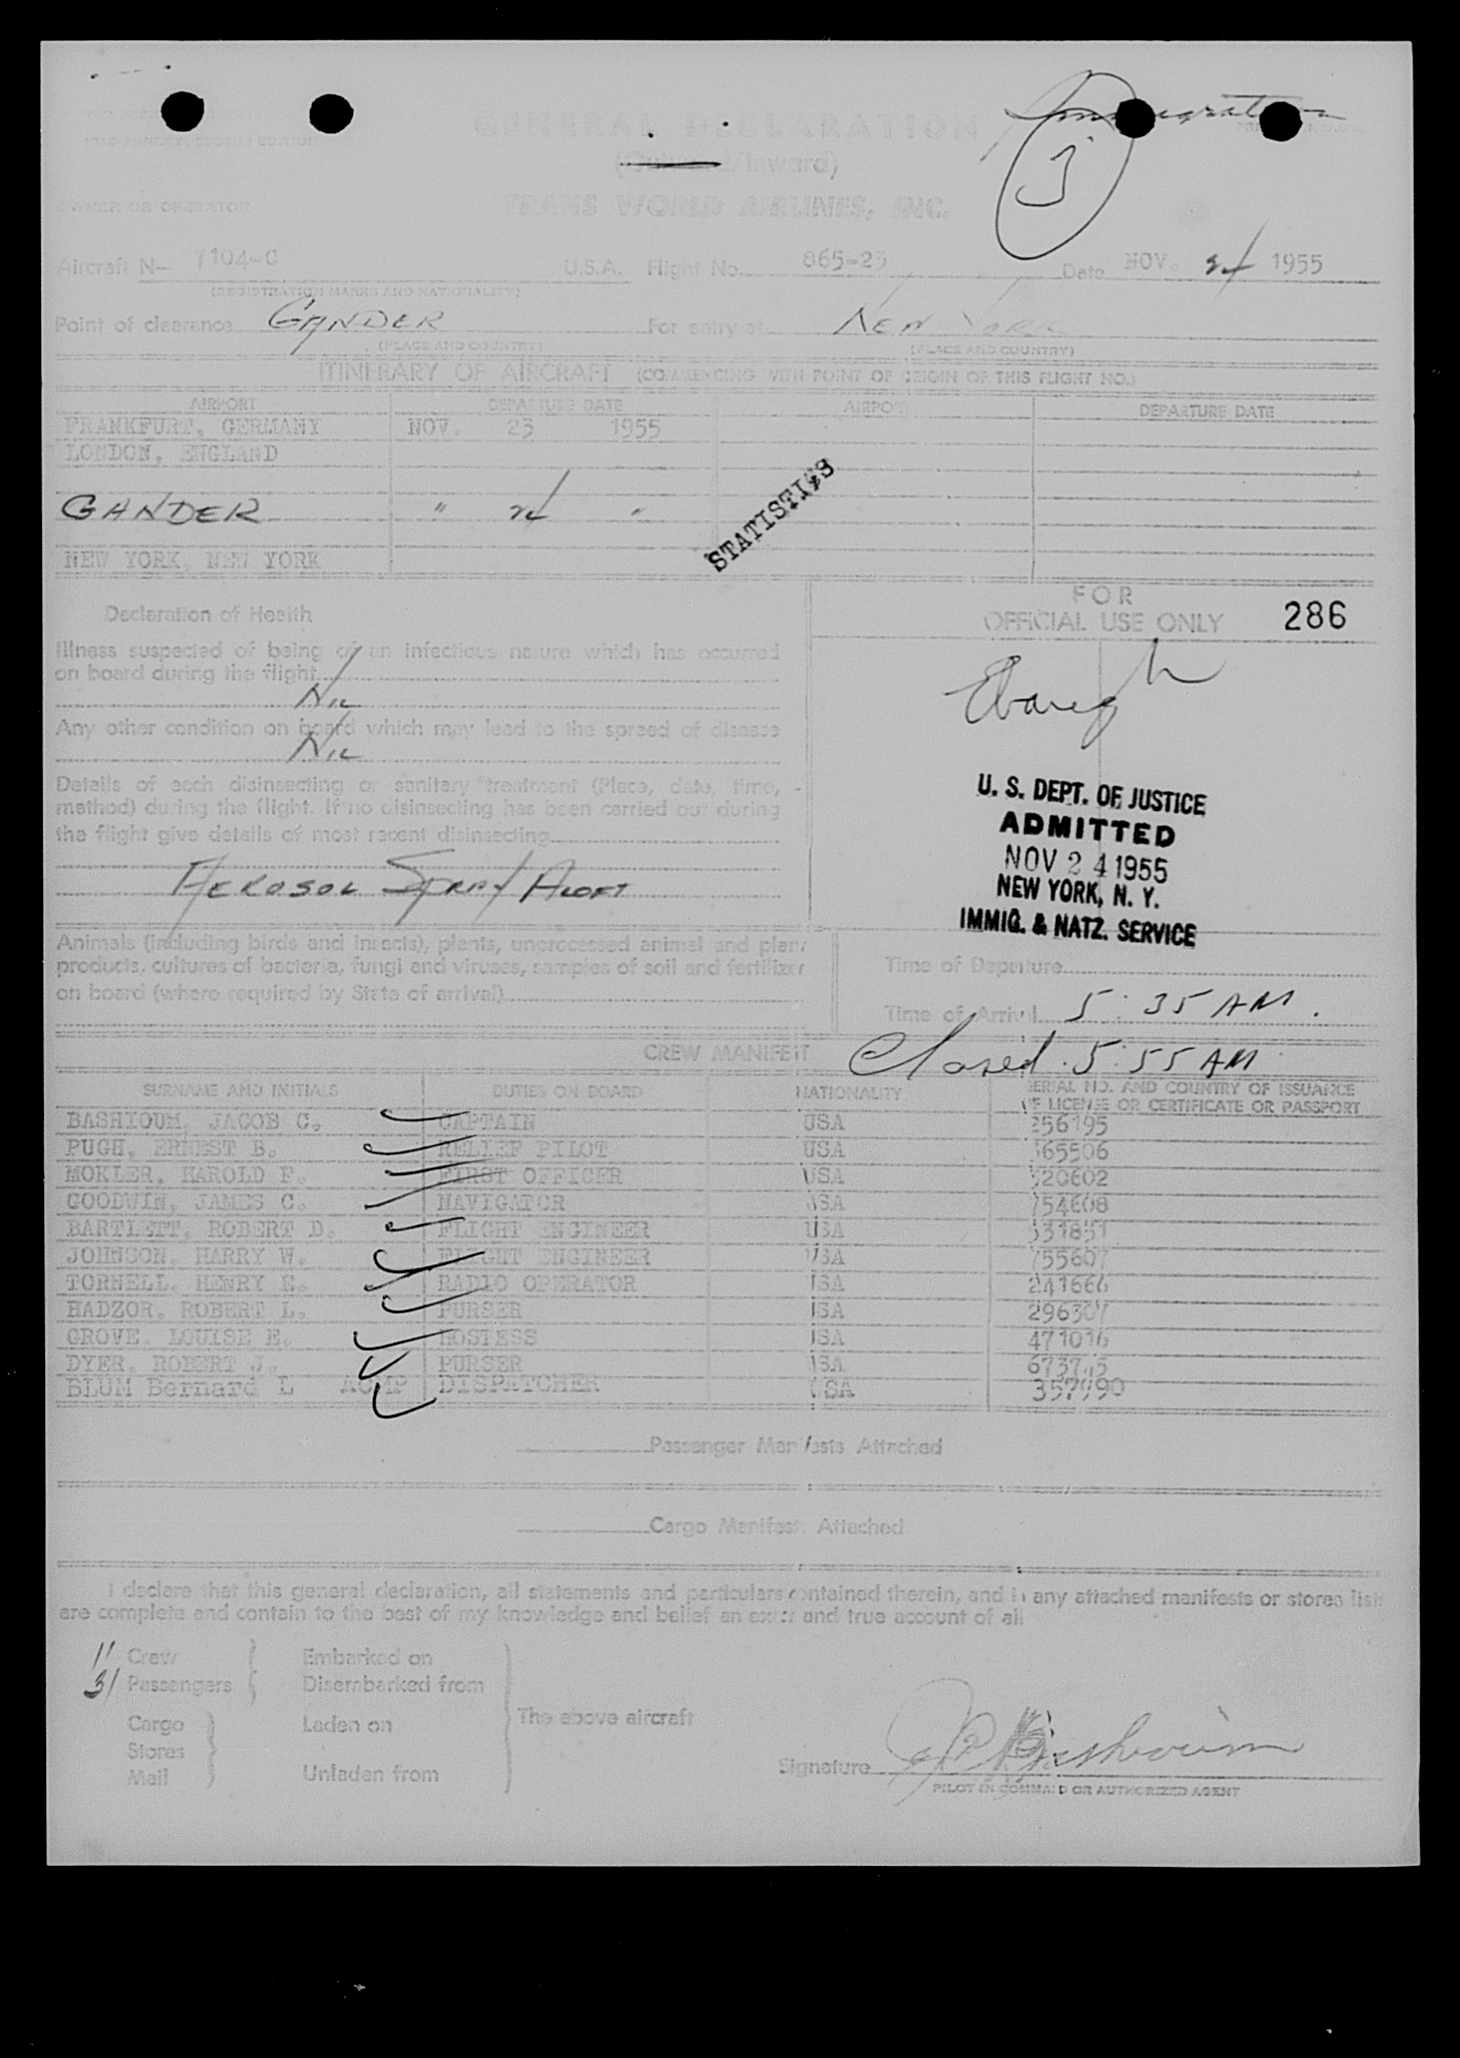 Immigration
GENERAL DECLARATION
(Outward/Inward)
3
TRANS WORLD AIRLINES, INC.
OWNER OR OPERATOR
Aircraft N— 7104-C U.S.A. Flight No. 865-23 Date NOV. 24 1955
(REGISTRATION MARKS AND NATIONALITY)
Point of clearance GANDER For entry at NEW YORK
(PLACE AND COUNTRY) (PLACE AND COUNTRY)
ITINERARY OF AIRCRAFT (COMMENCING WITH POINT OF ORIGIN OF THIS FLIGHT NO.)
AIRPORT DEPARTURE DATE AIRPORT DEPARTURE DATE
FRANKFURT, GERMANY NOV. 23 1955
LONDON, ENGLAND
STATISTICS
GANDER " 24 "
NEW YORK, NEW YORK
FOR
OFFICIAL USE ONLY 286
Declaration of Health
Illness suspected of being of an infectious nature which has occurred
on board during the flight
Nil
Any other condition on board which may lead to the spread of disease
Nil
Details of each disinsecting or sanitary treatment (Place, date, time,
method) during the flight. If no disinsecting has been carried out during
the flight give details of most recent disinsecting
AEROSOL SPRAY ALOFT
U. S. DEPT. OF JUSTICE
ADMITTED
NOV 24 1955
NEW YORK, N. Y.
IMMIG. & NATZ. SERVICE
Animals (including birds and insects), plants, unprocessed animal and plant
products, cultures of bacteria, fungi and viruses, samples of soil and fertilizer
on board (where required by State of arrival)
Time of Departure
Time of Arrival 5:35 AM.
Closed 5:55 AM
CREW MANIFEST
SURNAME AND INITIALS DUTIES ON BOARD NATIONALITY SERIAL NO. AND COUNTRY OF ISSUANCE
OF LICENSE OR CERTIFICATE OR PASSPORT
BASHIOUM, JACOB C. CAPTAIN USA 256195
PUGH, ERNEST B. RELIEF PILOT USA 65506
MOKLER, HAROLD F. FIRST OFFICER USA 20602
GOODWIN, JAMES C. NAVIGATOR USA 754608
BARTLETT, ROBERT D. FLIGHT ENGINEER USA
JOHNSON, HARRY W. FLIGHT ENGINEER USA 755607
TORNELL, HENRY E. RADIO OPERATOR USA 241666
HADZOR, ROBERT L. PURSER USA 296307
GROVE, LOUISE E. HOSTESS USA 471016
DYER, ROBERT J. PURSER USA
BLUM Bernard L DISPATCHER USA
Passenger Manifests Attached
Cargo Manifest Attached
I declare that this general declaration, all statements and particulars contained therein, and in any attached manifests or stores list
are complete and contain to the best of my knowledge and belief an exact and true account of all
11 Crew Embarked on
31 Passengers Disembarked from
The above aircraft
Cargo Laden on
Stores
Mail Unladen from
Signature
PILOT IN COMMAND OR AUTHORIZED AGENT